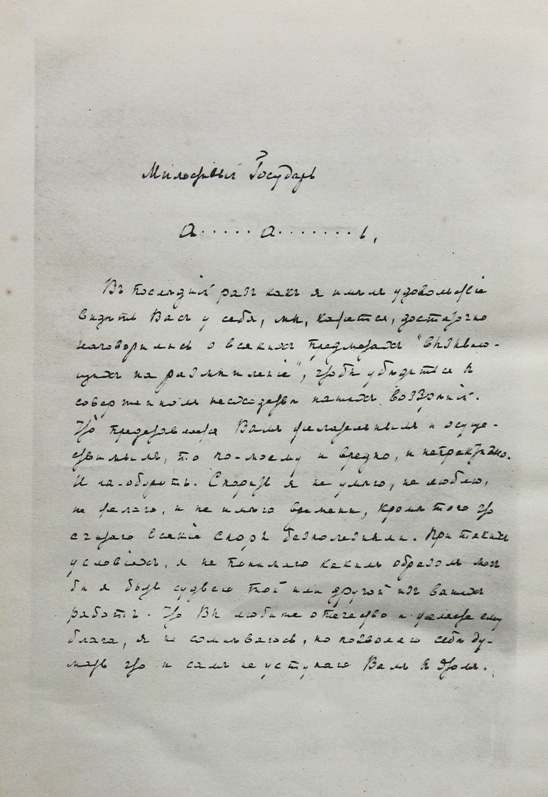 Милостивый Государь
А.....а.......ь,
Въ послѣдній разъ какъ я имѣлъ удовольствіе
видѣть Васъ у себя, мы, кажется, достаточно
наговорились о всякихъ предметахъ "вызываю-
щихъ на размышленіе", чтобы убѣдиться въ
совершенномъ несходствѣ нашихъ воззрѣній.
Что представляется Вамъ желательнымъ и осуще-
ствимымъ, то по-моему и вредно, и непрактично.
И на-оборотъ. Спорить я не умѣю, не люблю,
не желаю, и не имѣю времени, кромѣ того что
считаю всякіе споры безполезными. При такихъ
условіяхъ, я не понимаю какимъ образомъ могъ
бы я быть судьею той или другой изъ вашихъ
работъ. Что Вы любите отечество и желаете ему
блага, я не сомнѣваюсь, но позволяю себѣ ду-
мать что и самъ не уступаю Вамъ въ этомъ.